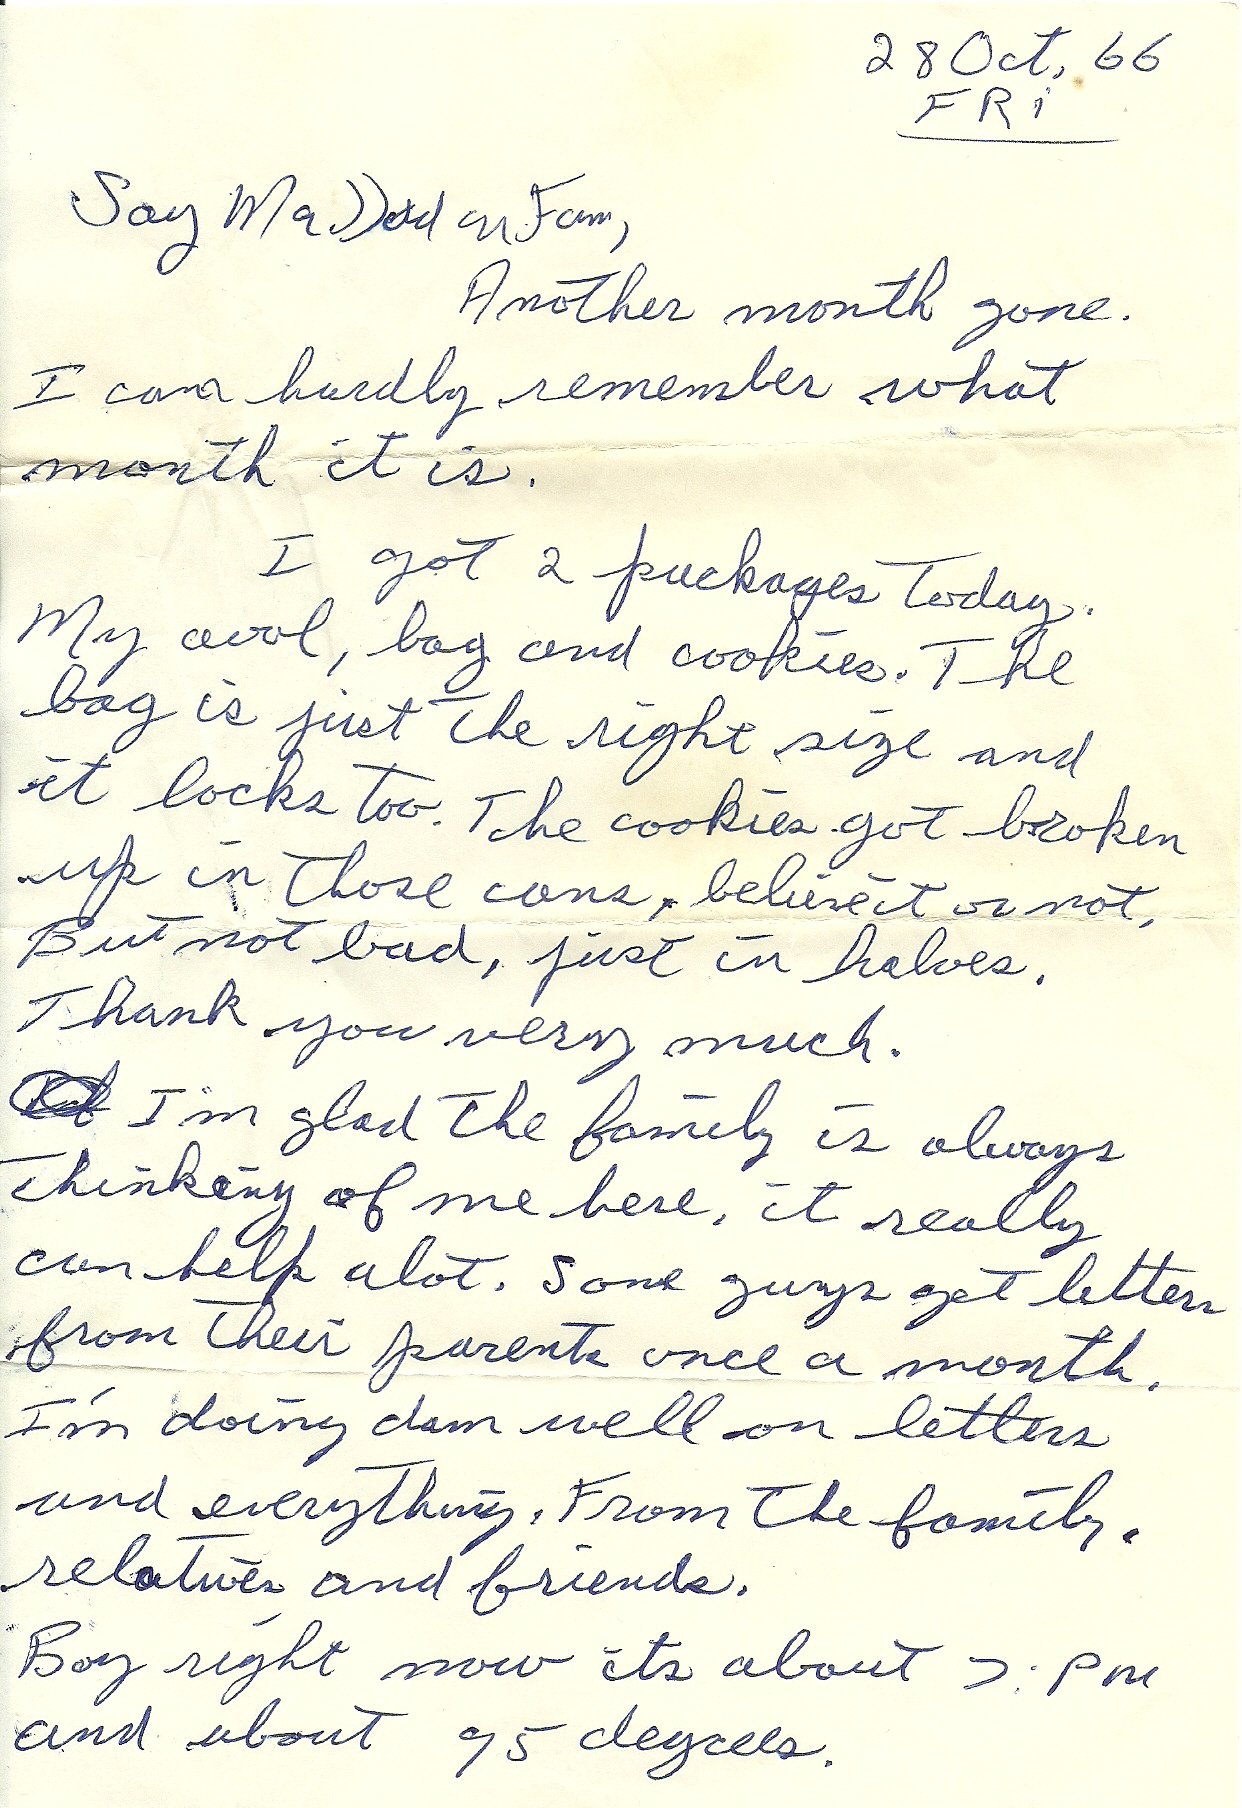 28 Oct. 66
FRi
Say Ma Dad an Fam,
Another month gone.
I can hardly remember what
month it is.
I got 2 packages today.
My awol, bag and cookies. The
bag is just the right size and
it locks too. The cookies got broken
up in those cans, believe it or not,
But not bad, just in halves.
Thank you very much.
I'm glad the family is always
thinking of me here, it really
can help alot. Some guys get letters
from their parents once a month.
I'm doing dam well on letters
and everything. From the family,
relatives and friends.
Boy right now its about 7: PM
and about 95 degrees.